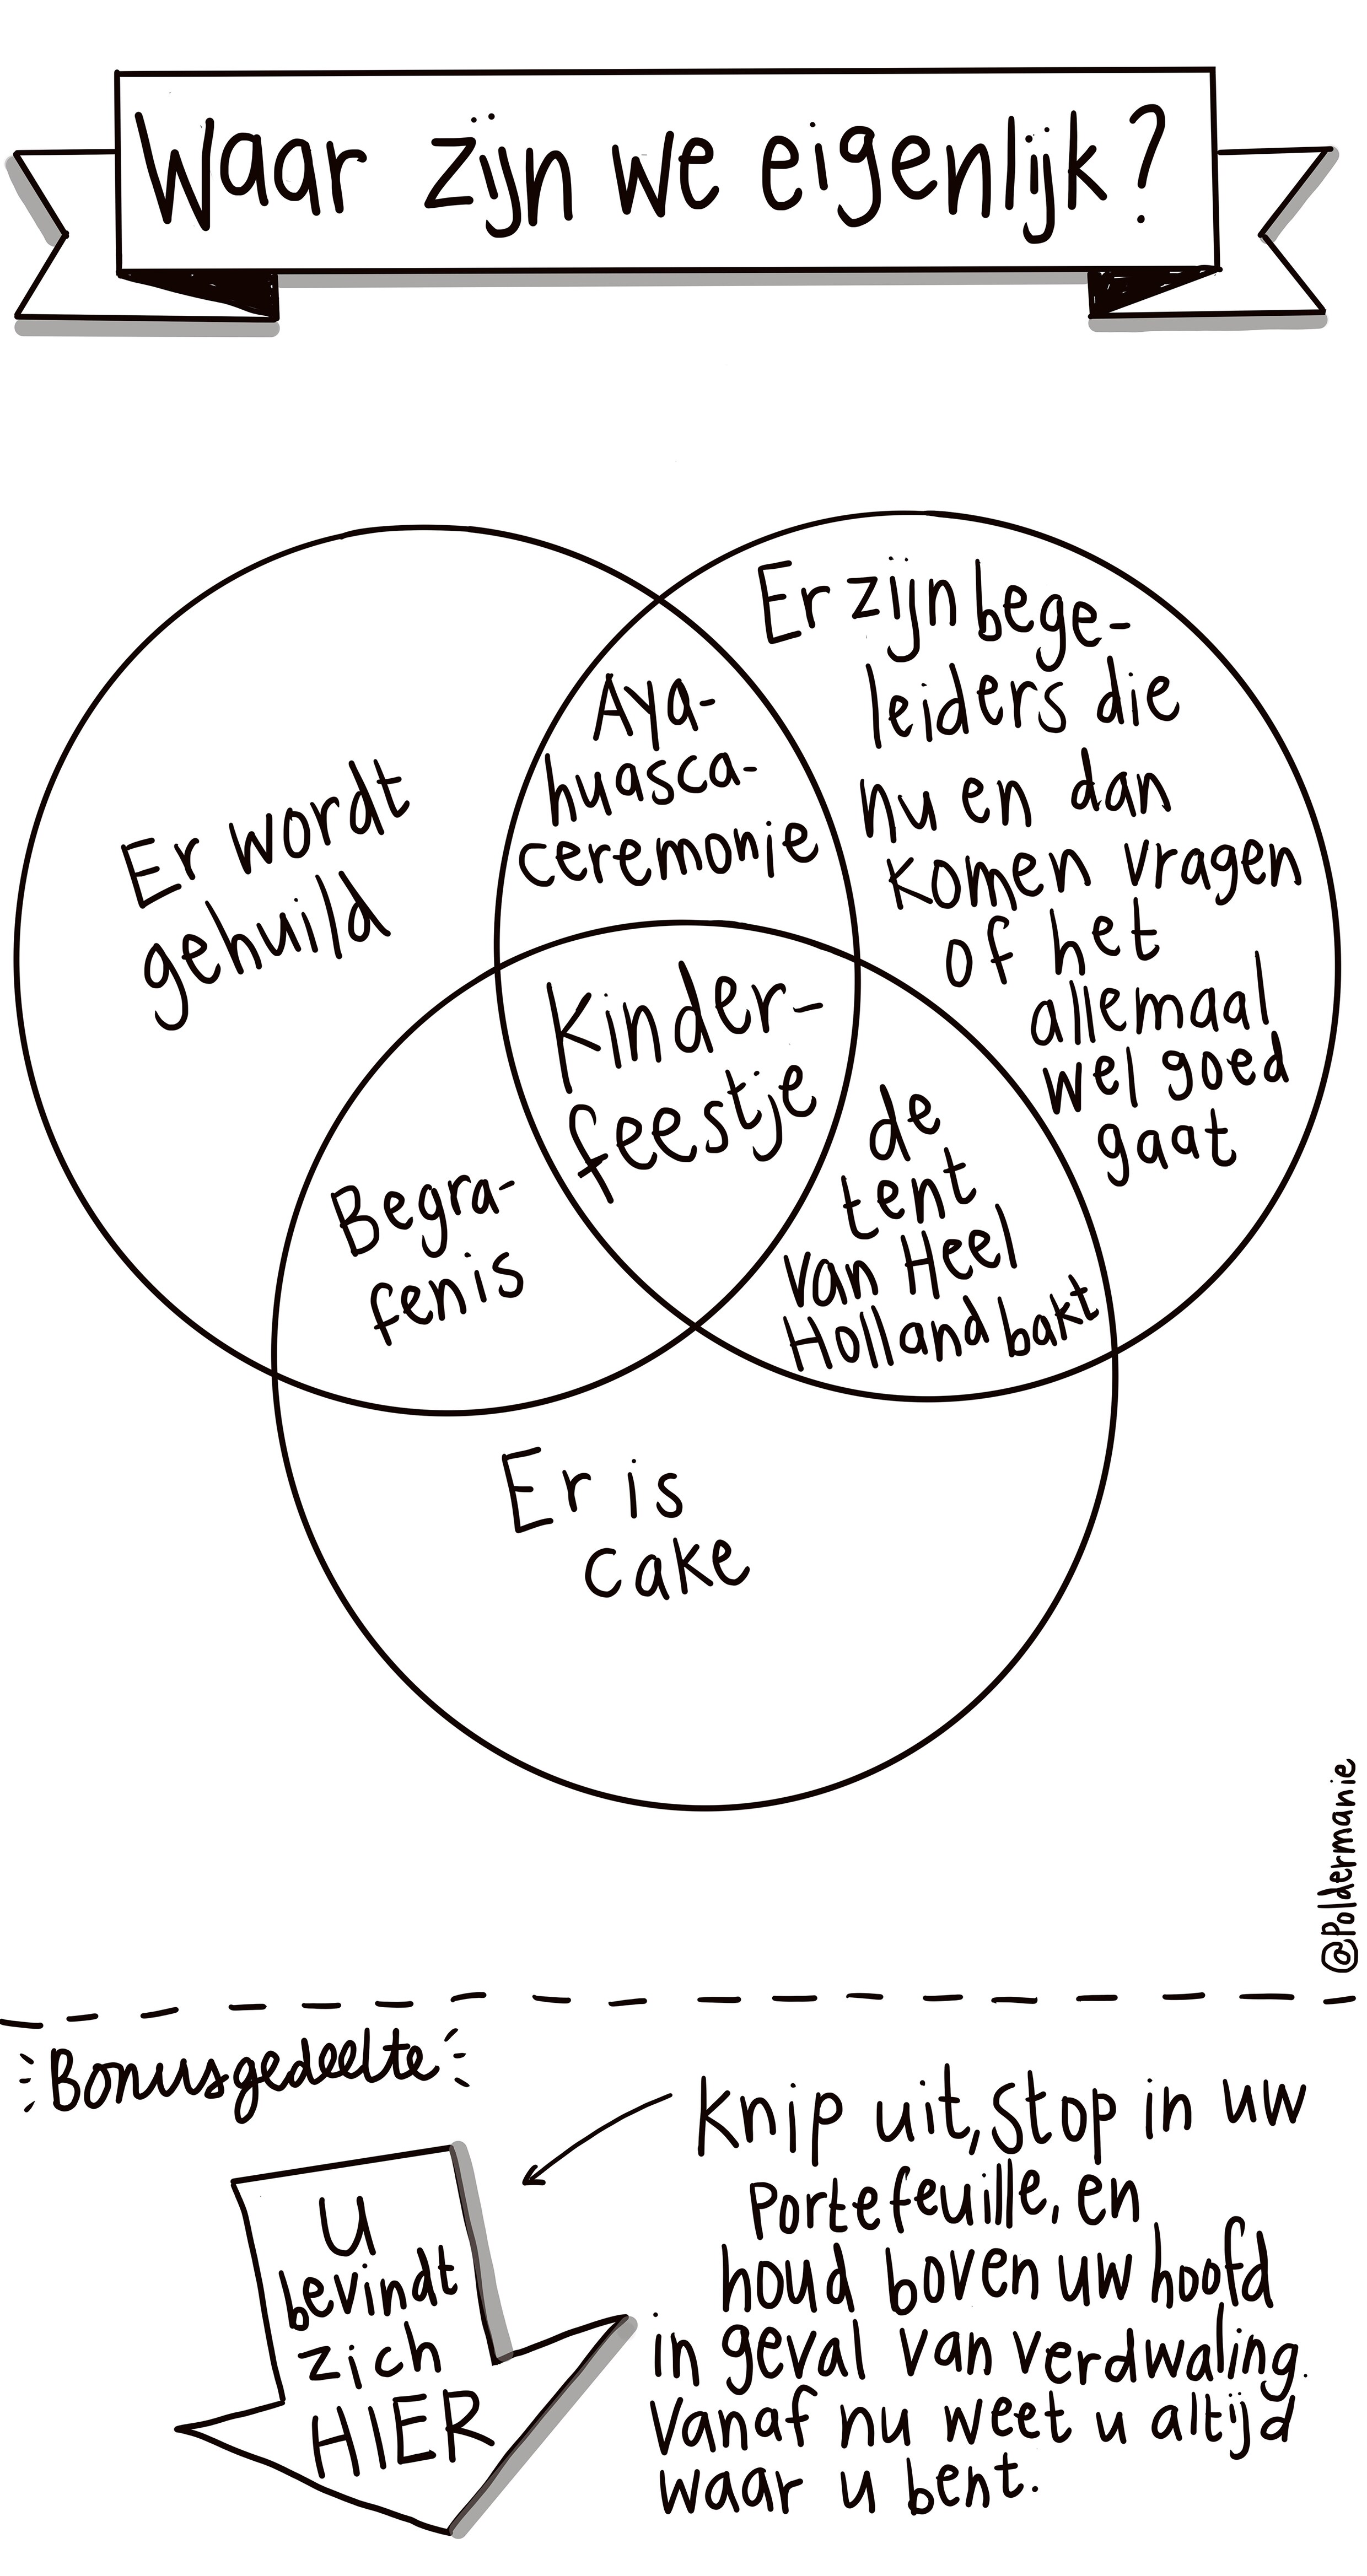 Waar zijn we eigenlijk?
Er wordt
gehuild
Aya-
huasca-
ceremonie
Er zijn bege-
leiders die
nu en dan
komen vragen
of het
allemaal
wel goed
gaat
Kinder-
feestje
Begra-
fenis
de
tent
van Heel
Holland bakt
Er is
cake
@Poldermanie
Bonusgedeelte
U
bevindt
zich
HIER
Knip uit, stop in uw
portefeuille, en
houd boven uw hoofd
in geval van verdwaling.
Vanaf nu weet u altijd
waar u bent.